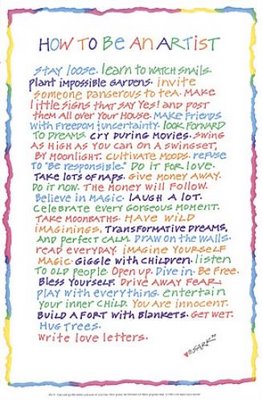 HOW TO BE AN ARTIST
STAY LOOSE. learn TO WATCH SNAILS.
PLANT IMPOSSIBLE GARDENS. invite
someone DANGEROUS TO TEA. MAKE
little signs that say yes! and post
them all over your House. Make Friends
with Freedom & uncertainty. look Forward
TO DREAMS. CRY DURING MOVIES. SWING
AS HIGH AS YOU CAN ON A SWINGSET,
BY MOONLIGHT. Cultivate MOODS. refuse
to "Be responsible." Do it For love.
TAKE LOTS OF NAPS. Give Money Away.
Do it now. The money will follow.
Believe in Magic. LAUGH A LOT.
Celebrate every Gorgeous moment.
Take MOONBATHS. HAVE WILD
imaginings, TRANSFORMATIVE DREAMS,
AND Perfect CALM. DRAW ON THE WALLS.
read everyday. imagine Yourself
MAGIC. Giggle WITH CHILDREN. listen
to old people. Open up. Dive in. Be Free.
Bless Yourself. Drive Away Fear.
play with everything. entertain
your inner CHILD. You Are innocent.
BUILD A FORT WITH BLANKETS. GET WET.
Hug Trees.
Write love letters.
SARK